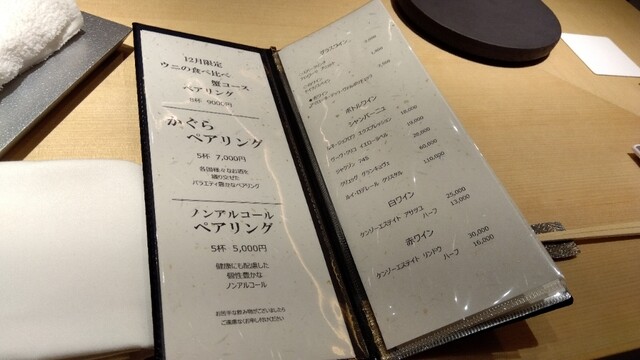 12月限定
ウニの食べ比べ
蟹コース
ペアリング
8杯 9000円
かぐら
ペアリング
5杯 7,000円
各国様々なお酒を
織り交ぜた
バラエティ豊かなペアリング
ノンアルコール
ペアリング
5杯 5,000円
健康にも配慮した
個性豊かな
ノンアルコール
お苦手な飲み物がございましたら
ご遠慮なくお申し付けください
グラスワイン
ボトルワイン
シャンパーニュ
18,000
ヴーヴ・クリコ イエローラベル
20,000
ジャクソン 74
60,000
クリュッグ グランキュヴェ
110,000
ルイ・ロデレール クリスタル
白ワイン
ケンゾーエステイト アサツユ 25,000
ハーフ 13,000
赤ワイン
ケンゾーエステイト リンドウ 30,000
ハーフ 16,000